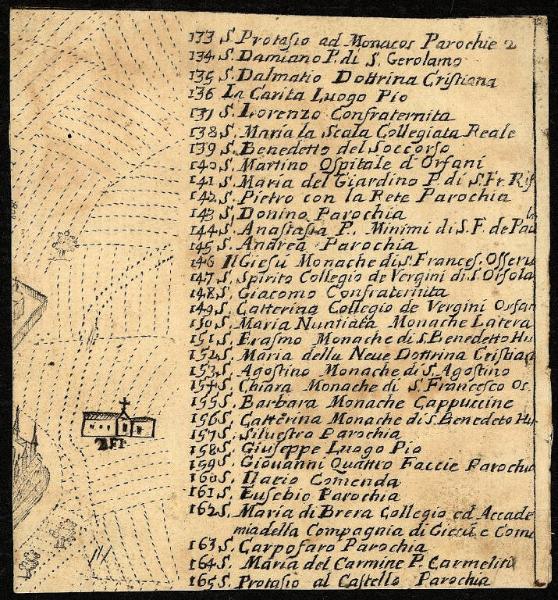 133 S. Protasio ad Monacos Parochie 2
134 S. Damiano P. di S. Gerolamo
135 S. Dalmatio Dottrina Cristiana
136 La Carita Luogo Pio
137 S. Lorenzo Confraternita
138 S. Maria la Scala Collegiata Reale
139 S. Benedetto del Soccorso
140 S. Martino Ospitale d'Orfani
141 S. Maria del Giardino P. di S. Fr. Rif
142 S. Pietro con la Rete Parochia
143 S. Donino Parochia
144 S. Anastasia P. Minimi di S. F. de Pau
145 S. Andrea Parochia
146 Il Giesú Monache di S. Frances. Osseru
147 S. Spirito Collegio de Vergini di S. Orsola
148 S. Giacomo Confraternita
149 S. Catterina Collegio de Vergini Orfan
150 S. Maria Nuntiata Monache Latera
151 S. Erasmo Monache di S. Benedetto Hu
152 S. Maria della Neue Dottrina Cristian
153 S. Agostino Monache di S. Agostino
154 S. Chiara Monache di S. Francesco Os.
155 S. Barbara Monache Cappuccine
156 S. Catterina Monache di S. Benedeto Hu
157 S. Silvestro Parochia
158 S. Giuseppe Luogo Pio
159 S. Giovanni Quattro Faccie Parochia
160 S. Ilario Comenda
161 S. Eusebio Parochia
162 S. Maria di Brera Collegio ed Accade
mia della Compagnia di Giesú e Come
163 S. Carpofaro Parochia
164 S. Maria del Carmine P. Carmeliti
165 S. Protasio al Castello Parochia